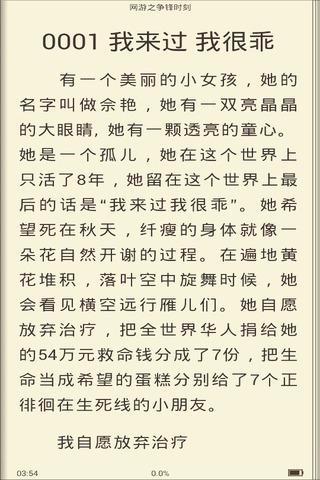 网游之争锋时刻
0001 我来过 我很乖
有一个美丽的小女孩，她的
名字叫做佘艳，她有一双亮晶晶
的大眼睛, 她有一颗透亮的童心。
她是一个孤儿，她在这个世界上
只活了8年，她留在这个世界上最
后的话是“我来过我很乖”。她希
望死在秋天，纤瘦的身体就像一
朵花自然开谢的过程。在遍地黄
花堆积，落叶空中旋舞时候，她
会看见横空远行雁儿们。她自愿
放弃治疗，把全世界华人捐给她
的54万元救命钱分成了7份，把生
命当成希望的蛋糕分别给了7个正
徘徊在生死线的小朋友。
我自愿放弃治疗
03:54
0.0%